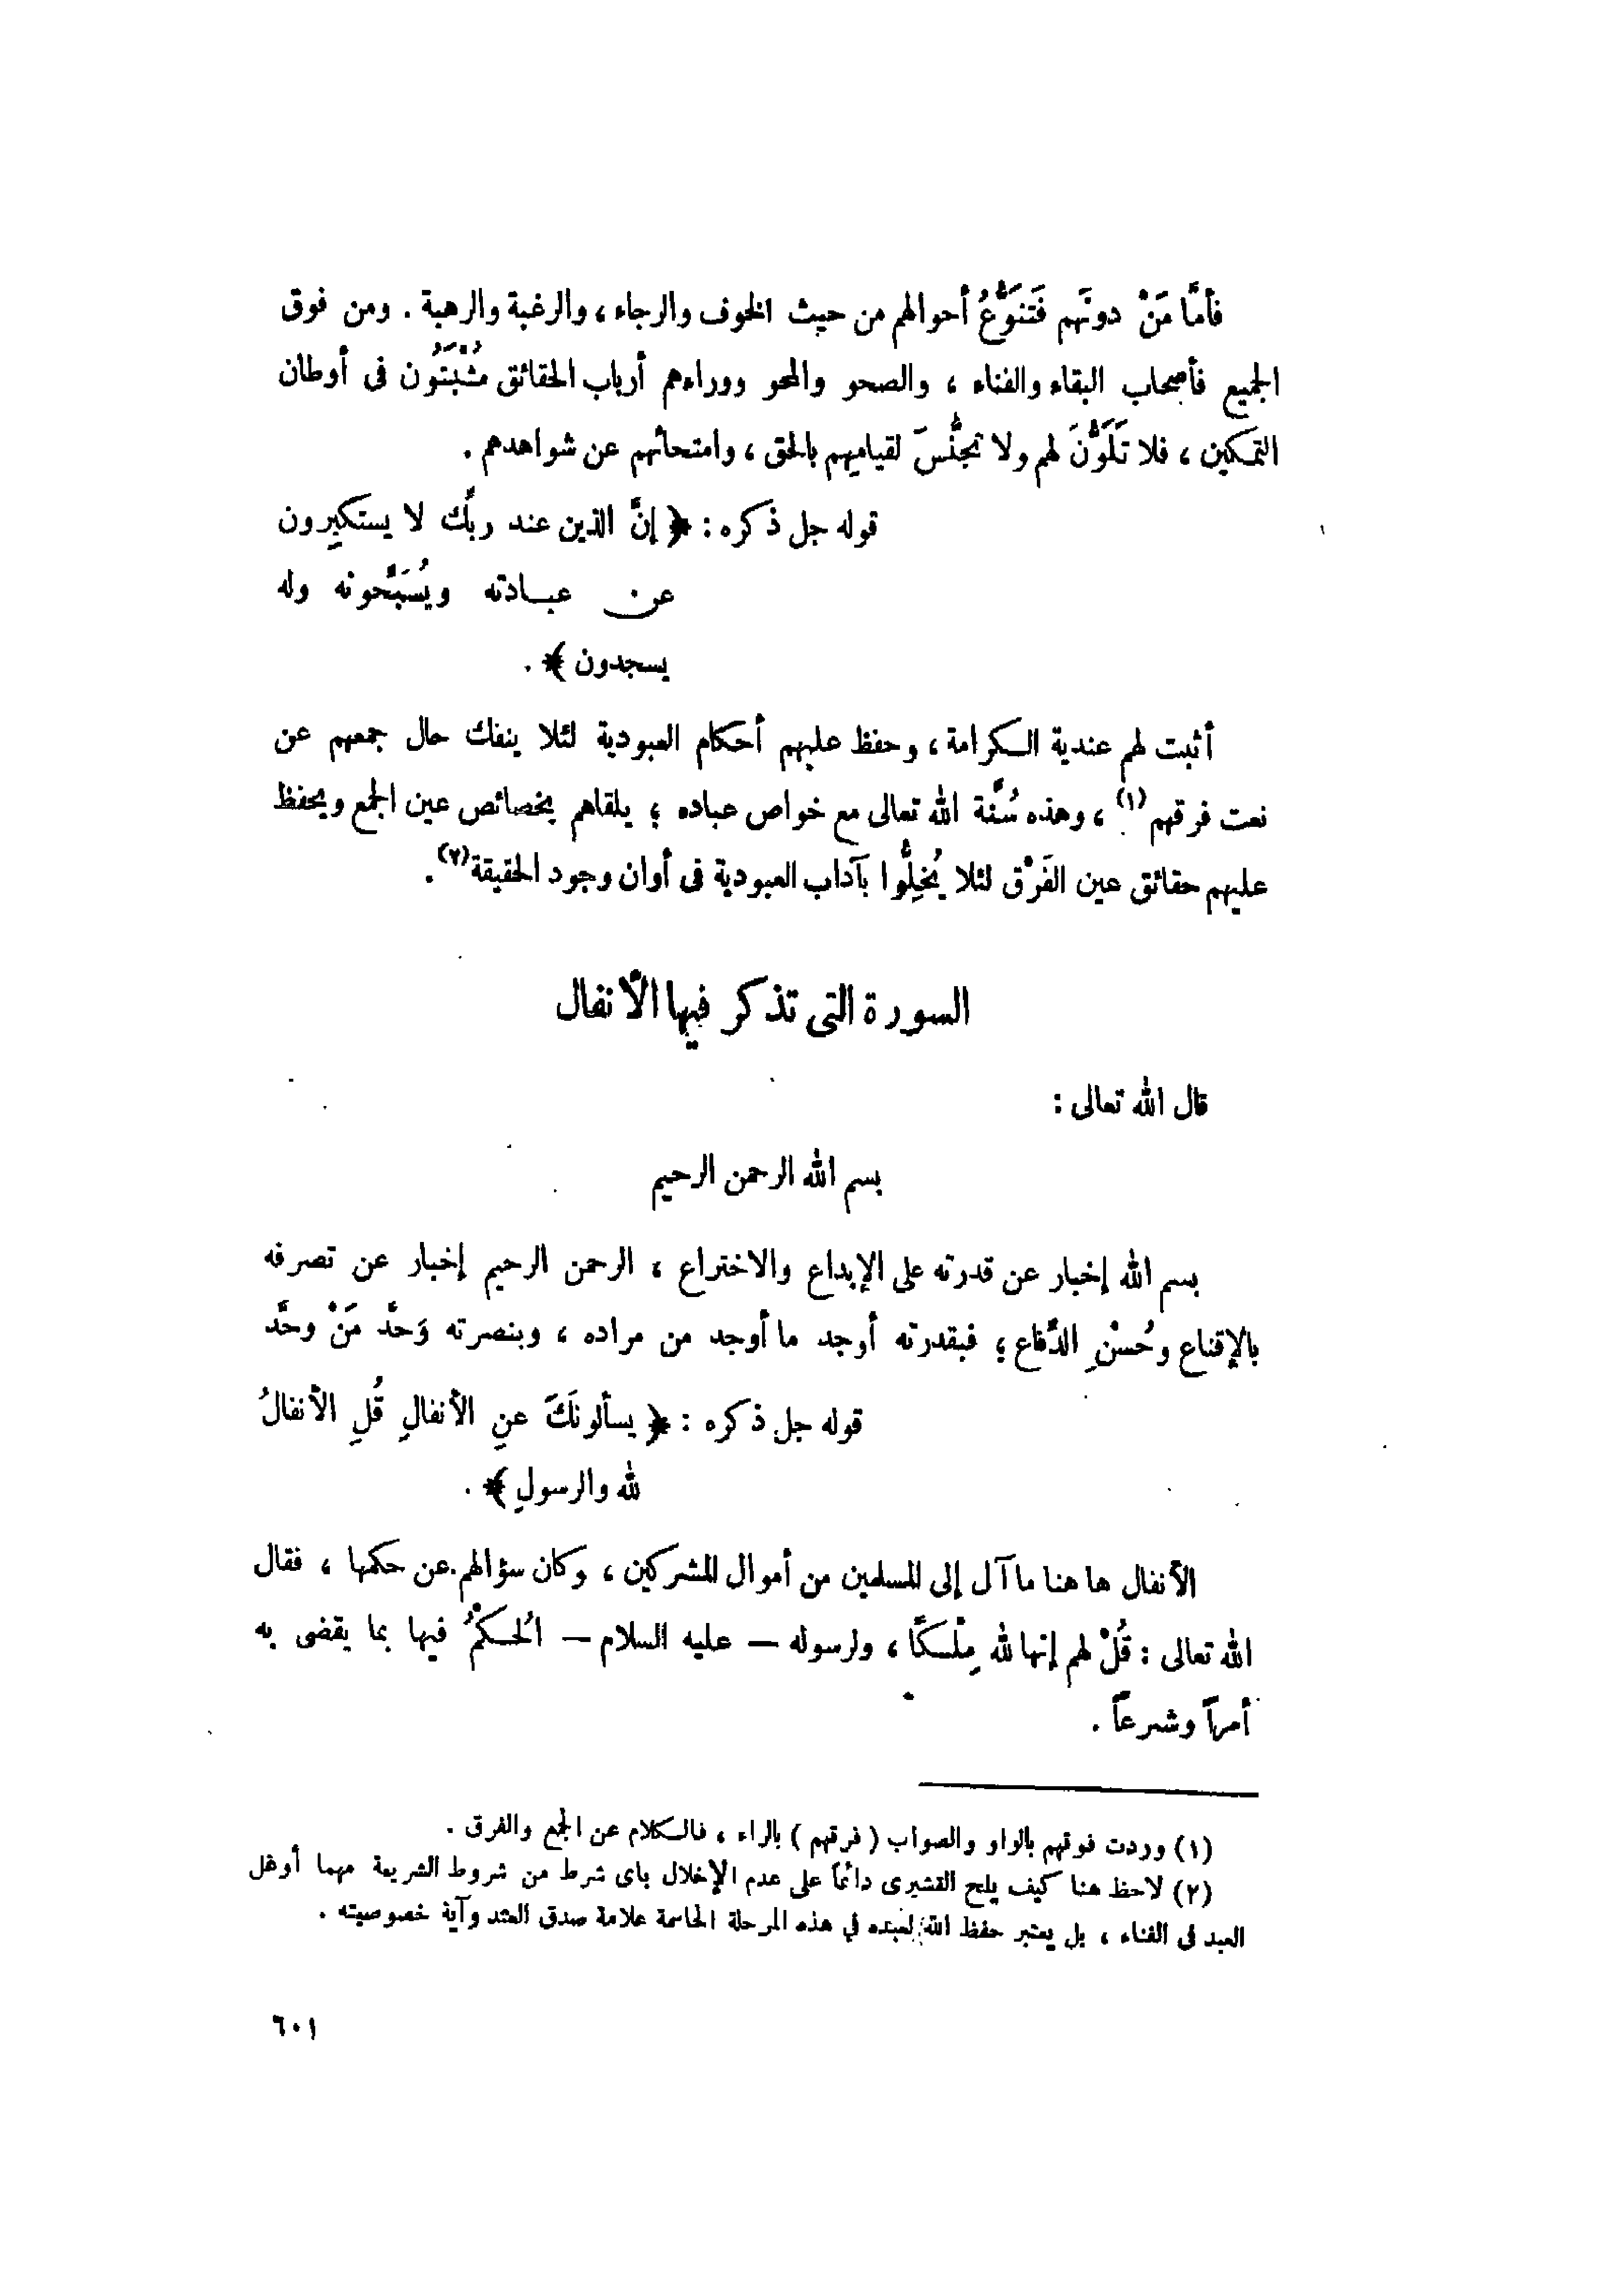 فأمَّا مَنْ دونَهم فَتَنَوَّعُ أحوالهم من حيث الخوف والرجاء ، والرغبة والرهبة . ومن فوق
الجميع فأصحاب البقاء والفناء ، والصحو والمحو ووراءهم أرباب الحقائق مُثْبَتُون فى أوطان
التمكين ، فلا تَلَوُّنَ لهم ولا تجنُّسَ لقيامهم بالحق ، وامتحائهم عن شواهدهم .
قوله جل ذكره : ﴿ إنَّ الذين عند ربِّك لا يستكبرون
عن عبادته ويُسَبِّحونه وله
يسجدون ﴾ .
أثبت لهم عندية الكرامة ، وحفظ عليهم أحكام العبودية لئلا ينفك حال جمعهم عن
نعت فرقهم (١) ، وهذه سُنَّة الله تعالى مع خواص عباده ؛ يلقاهم بخصائص عين الجمع ويحفظ
عليهم حقائق عين الفَرْق لئلا يُخِلُّوا بآداب العبودية فى أوان وجود الحقيقة (٢) .
السورة التى تذكر فيها الأنفال
قال الله تعالى :
بسم الله الرحمن الرحيم
بسم الله إخبار عن قدرته على الإبداع والاختراع ، الرحمن الرحيم إخبار عن تصرفه
بالإقناع وحُسْنِ الدِّفاع ؛ فبقدرته أوجد ما أوجد من مراده ، وبنصرته وَحَّد مَنْ وحَّد
قوله جل ذكره : ﴿ يسألونَكَ عنِ الأنفالِ قُلِ الأنفالُ
لله والرسولِ ﴾ .
الأنفال ها هنا ما آل إلى المسلمين من أموال المشركين ، وكان سؤالهم عن حكمها ، فقال
الله تعالى : قُلْ لهم إنها لله مِلْكاً ، ولرسوله — عليه السلام — الُحكْمُ فيها بما يقضى به
أمراً وشرعاً .
(١) وردت فوقهم بالواو والصواب ( فرقهم ) بالراء ، فالكلام عن الجمع والفرق .
(٢) لاحظ هنا كيف يلح القشيرى دائماً على عدم الإخلال باى شرط من شروط الشريعة مهما أوغل
العبد فى الفناء ، بل يعتبر حفظ الله لعبده في هذه المرحلة الحاسمة علامة صدق العبد وآية خصوصيته .
٦٠١